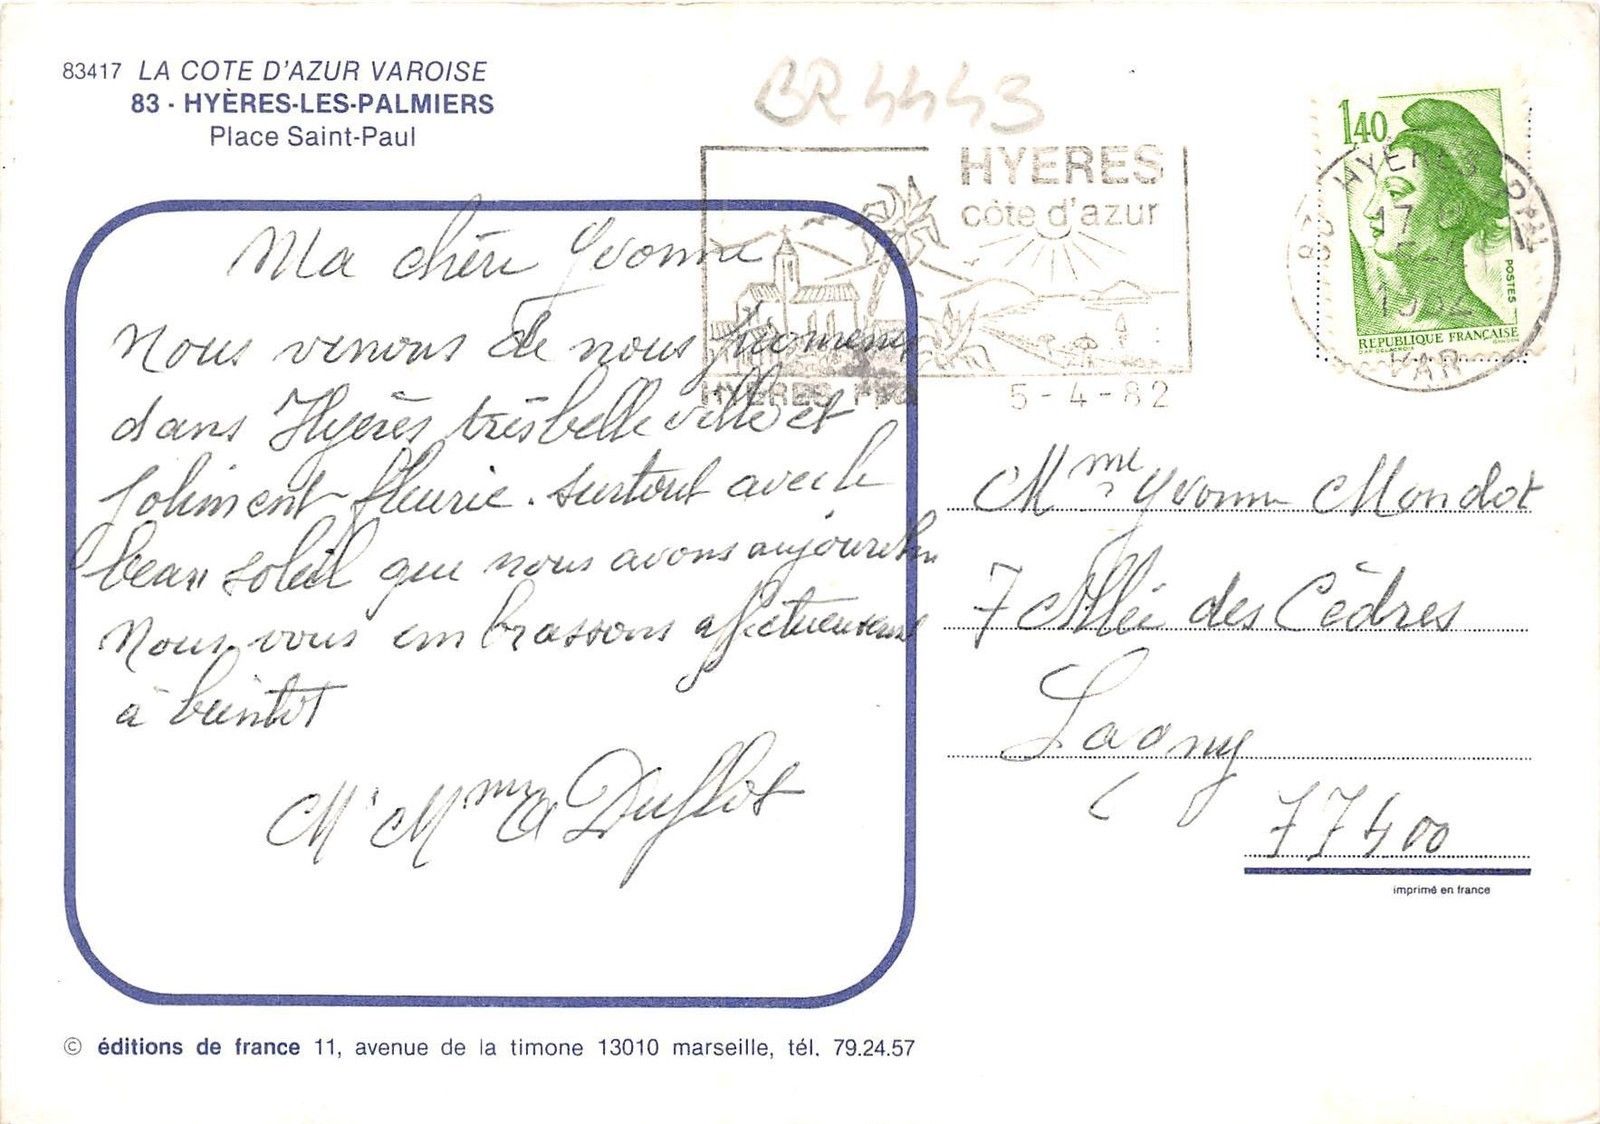 83417 LA COTE D'AZUR VAROISE
83 - HYÈRES-LES-PALMIERS
Place Saint-Paul
BR4443
HYERES
côte d'azur
5-4-82
1,40
POSTES
REPUBLIQUE FRANÇAISE
83 HYERES
17
5-4
1982
VAR
Ma chère Yvonne
Nous venons de nous promener
dans Hyères très belle ville et
joliment fleurie. surtout avec le
beau soleil que nous avons aujourdhu
Nous vous embrassons affectueusement
à bientôt
Mr Mme A Duflot
Mme Yvonne Mondot
7 Allée des Cèdres
Lagny
77400
imprimé en france
© éditions de france 11, avenue de la timone 13010 marseille, tél. 79.24.57